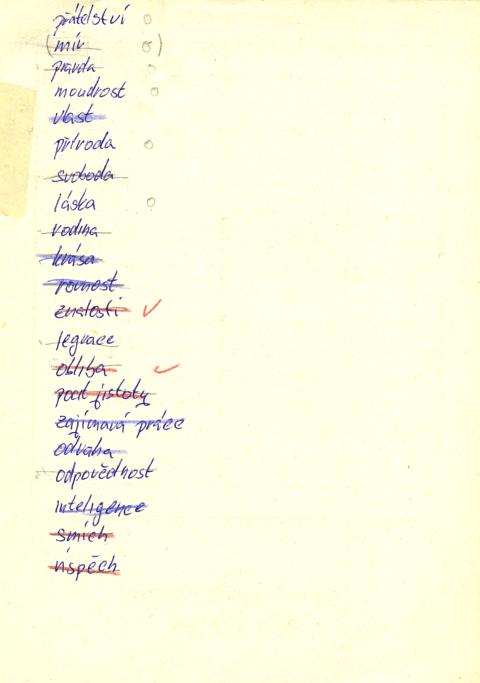 přátelství
(mír)
pravda
moudrost
vlast
příroda
svoboda
láska
rodina
krása
rovnost
znalosti
legrace
obliba
pocit jistoty
zajímavá práce
odvaha
odpovědnost
inteligence
smích
úspěch